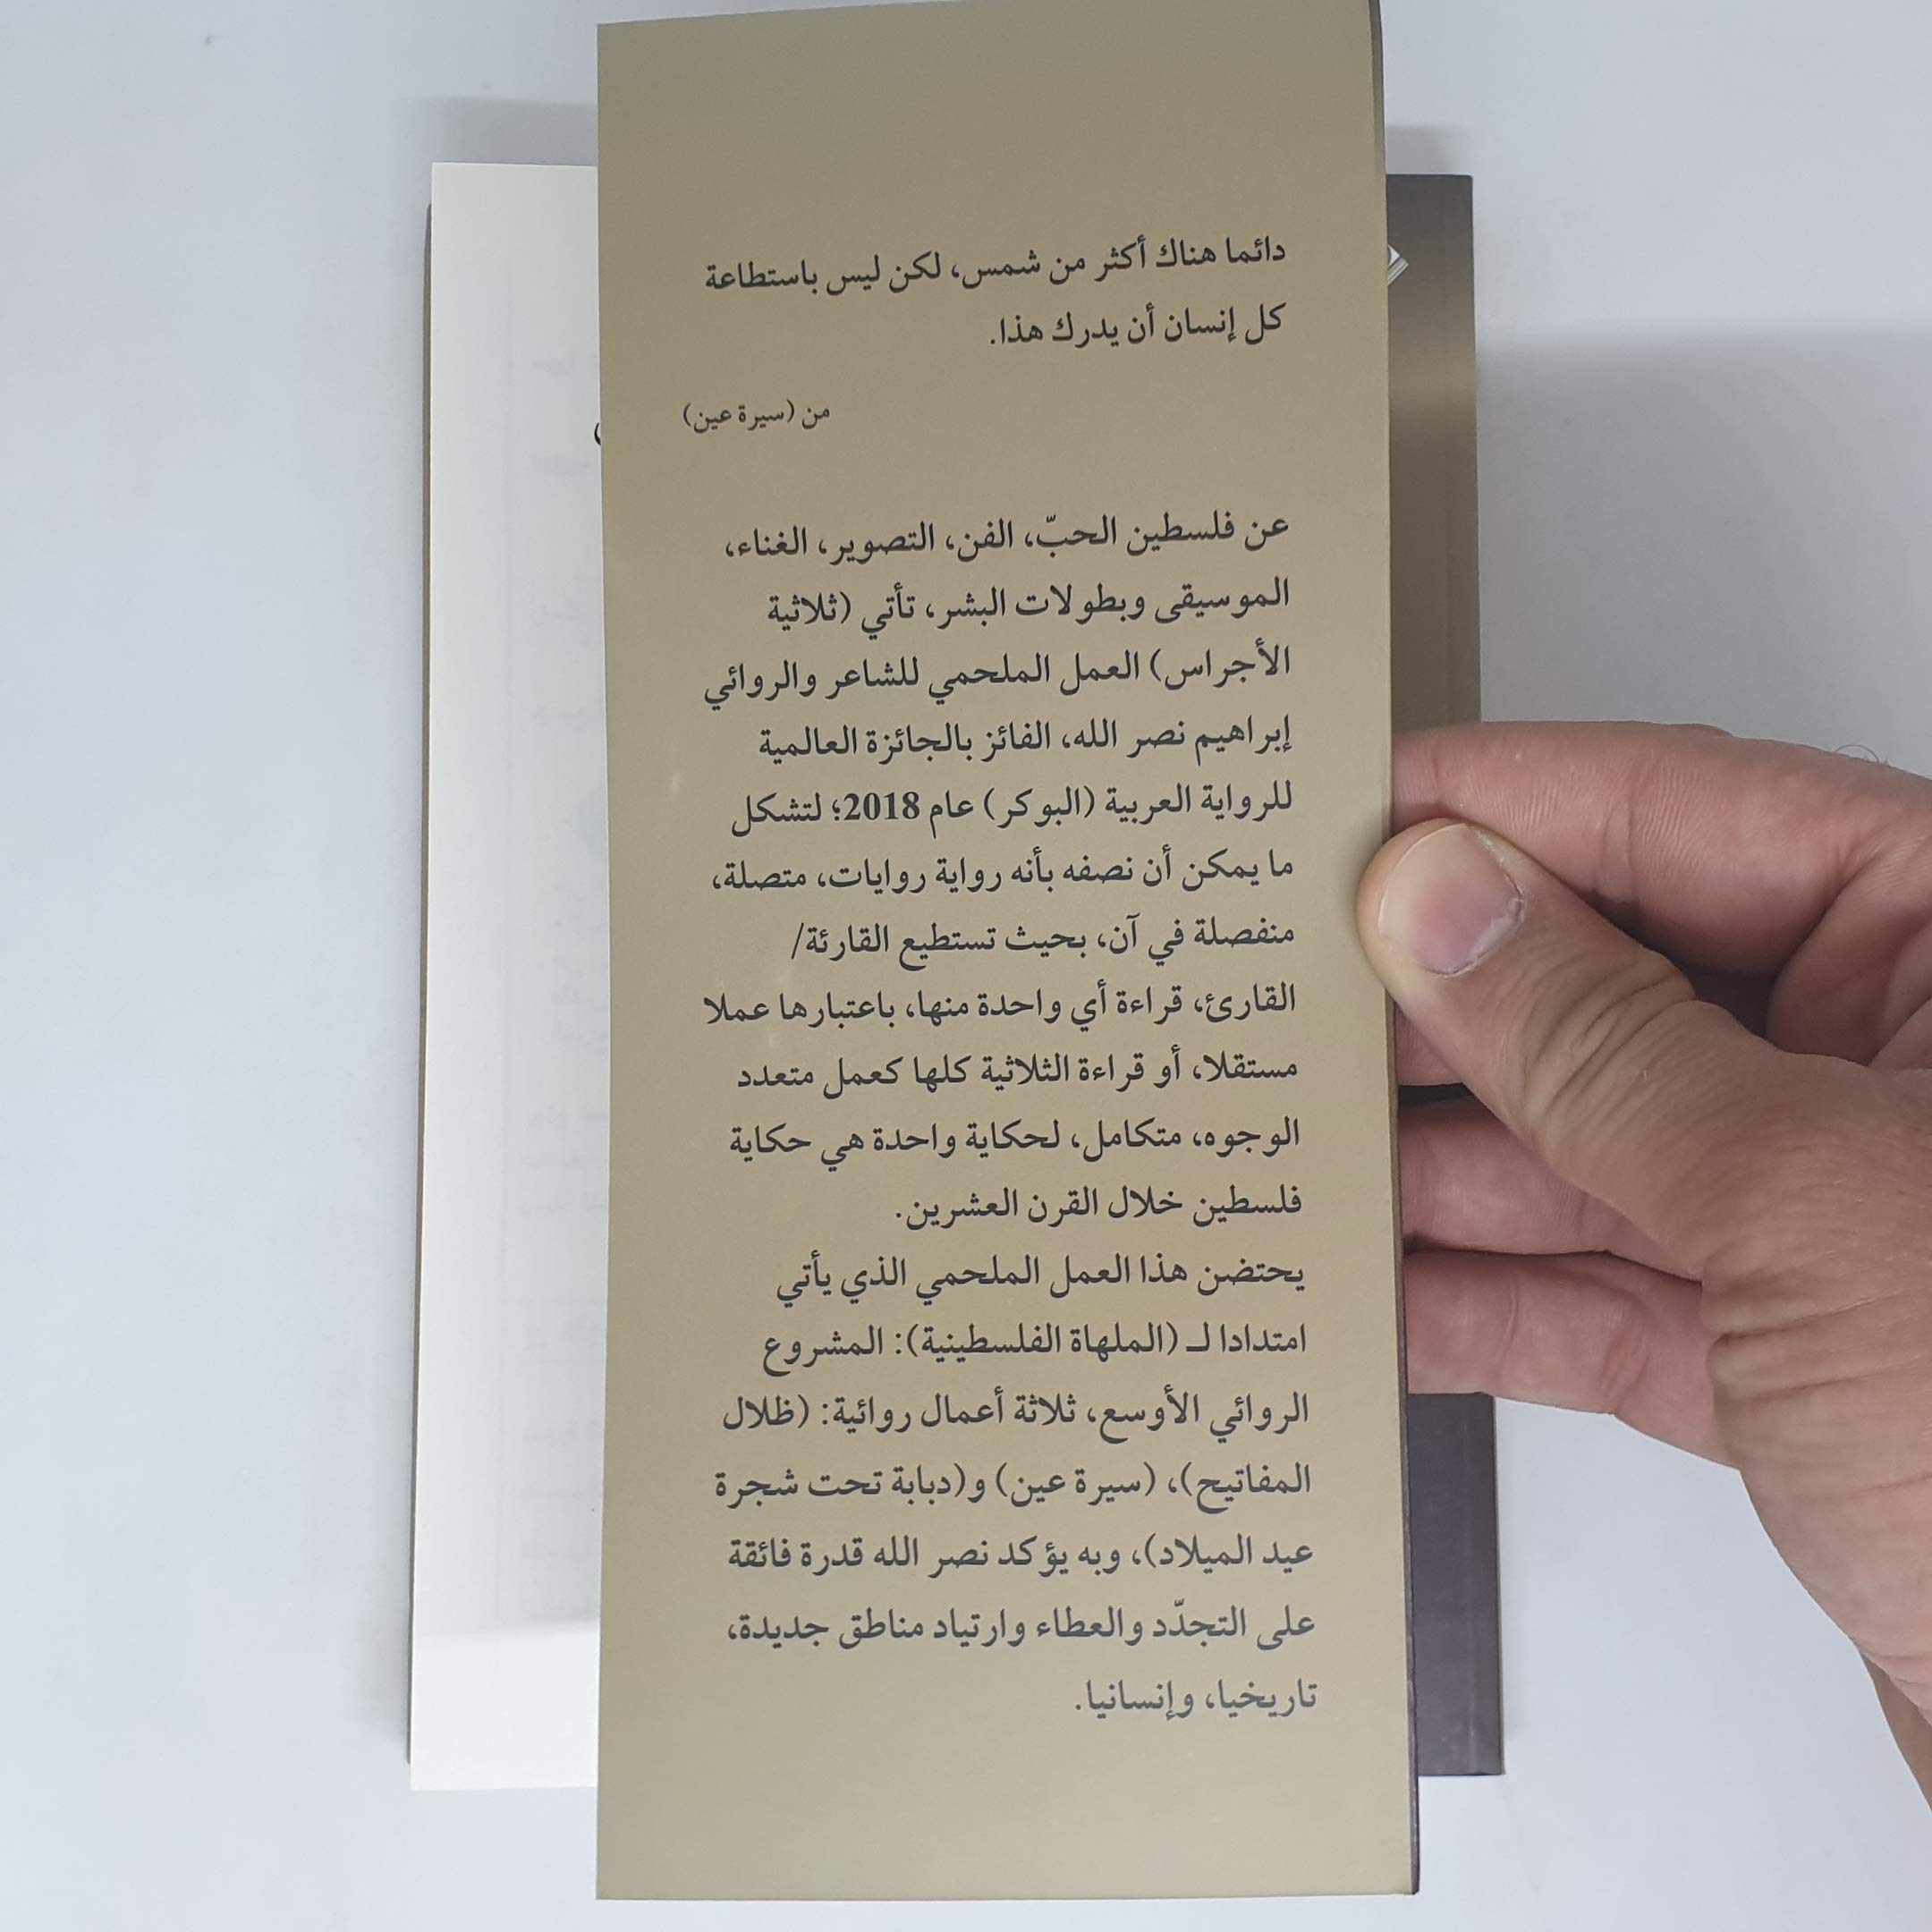 دائما هناك أكثر من شمس، لكن ليس باستطاعة
كل إنسان أن يدرك هذا.
من (سيرة عين)
عن فلسطين الحبّ، الفن، التصوير، الغناء،
الموسيقى وبطولات البشر، تأتي (ثلاثية
الأجراس) العمل الملحمي للشاعر والروائي
إبراهيم نصر الله، الفائز بالجائزة العالمية
للرواية العربية (البوكر) عام 2018؛ لتشكل
ما يمكن أن نصفه بأنه رواية روايات، متصلة،
منفصلة في آن، بحيث تستطيع القارئة/
القارئ، قراءة أي واحدة منها، باعتبارها عملا
مستقلا، أو قراءة الثلاثية كلها كعمل متعدد
الوجوه، متكامل، لحكاية واحدة هي حكاية
فلسطين خلال القرن العشرين.
يحتضن هذا العمل الملحمي الذي يأتي
امتدادا لـ (الملهاة الفلسطينية): المشروع
الروائي الأوسع، ثلاثة أعمال روائية: (ظلال
المفاتيح)، (سيرة عين) و(دبابة تحت شجرة
عيد الميلاد)، وبه يؤكد نصر الله قدرة فائقة
على التجدّد والعطاء وارتياد مناطق جديدة،
تاريخيا، وإنسانيا.